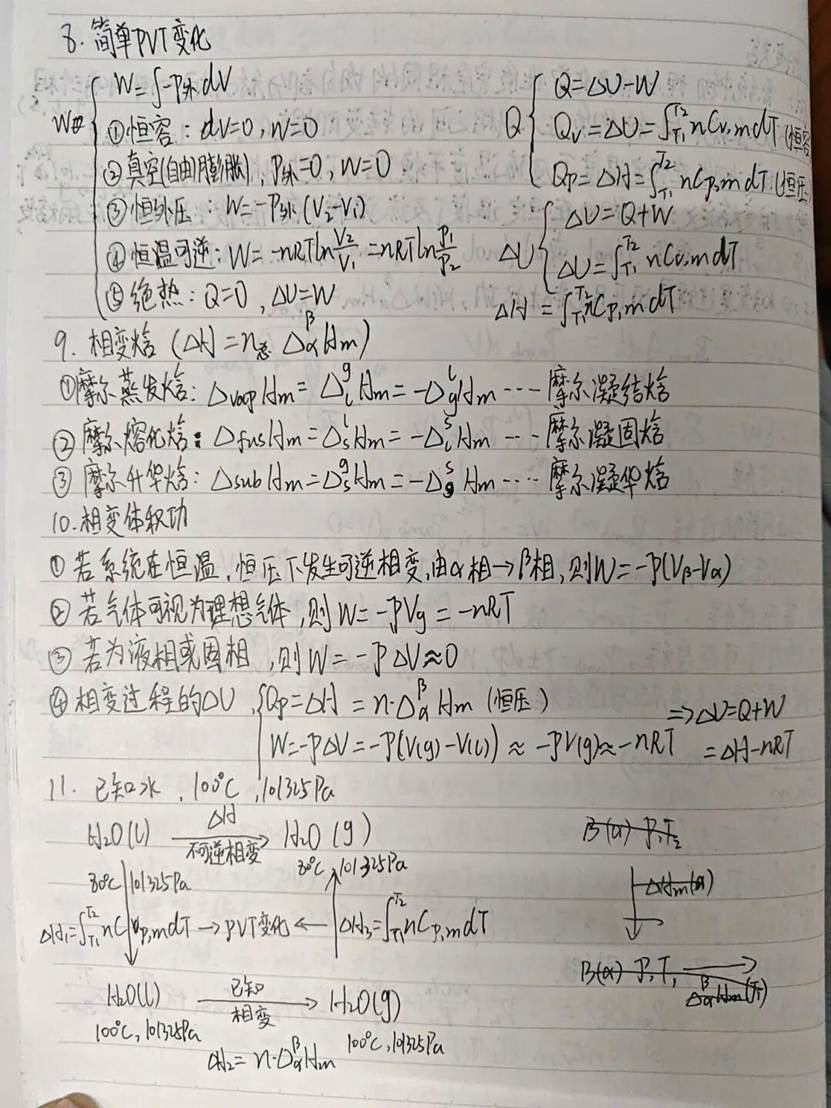 8. 简单PVT变化
W { W=∫-p外dV
①恒容: dV=0, W=0
②真空(自由膨胀), p外=0, W=0
③恒外压 W=-p外(V₂-V₁)
④恒温可逆: W=-nRTln V₂/V₁=nRTln p₁/p₂
⑤绝热: Q=0, ΔU=W
Q { Q=ΔU-W
Qv=ΔU=∫T₁T₂ nCv,mdT (恒容
Qp=ΔH=∫T₁T₂ nCp,mdT (恒压
ΔU { ΔU=Q+W
ΔU=∫T₁T₂ nCv,mdT
ΔH=∫T₁T₂ nCp,mdT
9. 相变焓 (ΔH=n ΔαβHm)
①摩尔蒸发焓: ΔvapHm=ΔlgHm=-ΔglHm ···· 摩尔凝结焓
②摩尔熔化焓: ΔfusHm=ΔslHm=-ΔlsHm ···· 摩尔凝固焓
③摩尔升华焓: ΔsubHm=ΔsgHm=-ΔgsHm ···· 摩尔凝华焓
10. 相变体积功
①若系统在恒温,恒压下发生可逆相变,由α相→β相,则W=-p(Vβ-Vα)
②若气体可视为理想气体,则W=-pVg=-nRT
③若为液相或固相,则W=-pΔV≈0
④相变过程的ΔU, { Qp=ΔH=n·ΔαβHm (恒压)
W=-pΔV=-p(V(g)-V(l))≈-pV(g)≈-nRT
⇒ΔU=Q+W
=ΔH-nRT
11. 已知水, 100℃, 101325Pa
H₂O(l) ΔH 不可逆相变 → H₂O(g)
80℃ 101325Pa
80℃, 101325Pa
ΔH₁=∫T₁T₂ nCp,mdT → PVT变化 ← ΔH₃=∫T₁T₂ nCp,mdT
H₂O(l) 已知 相变 → H₂O(g)
100℃, 101325Pa
100℃, 101325Pa
ΔH₂=n·ΔαβHm
B(α) P,T₂
ΔHm(α)
B(α) P,T₁ →
ΔαβHm(T₁)